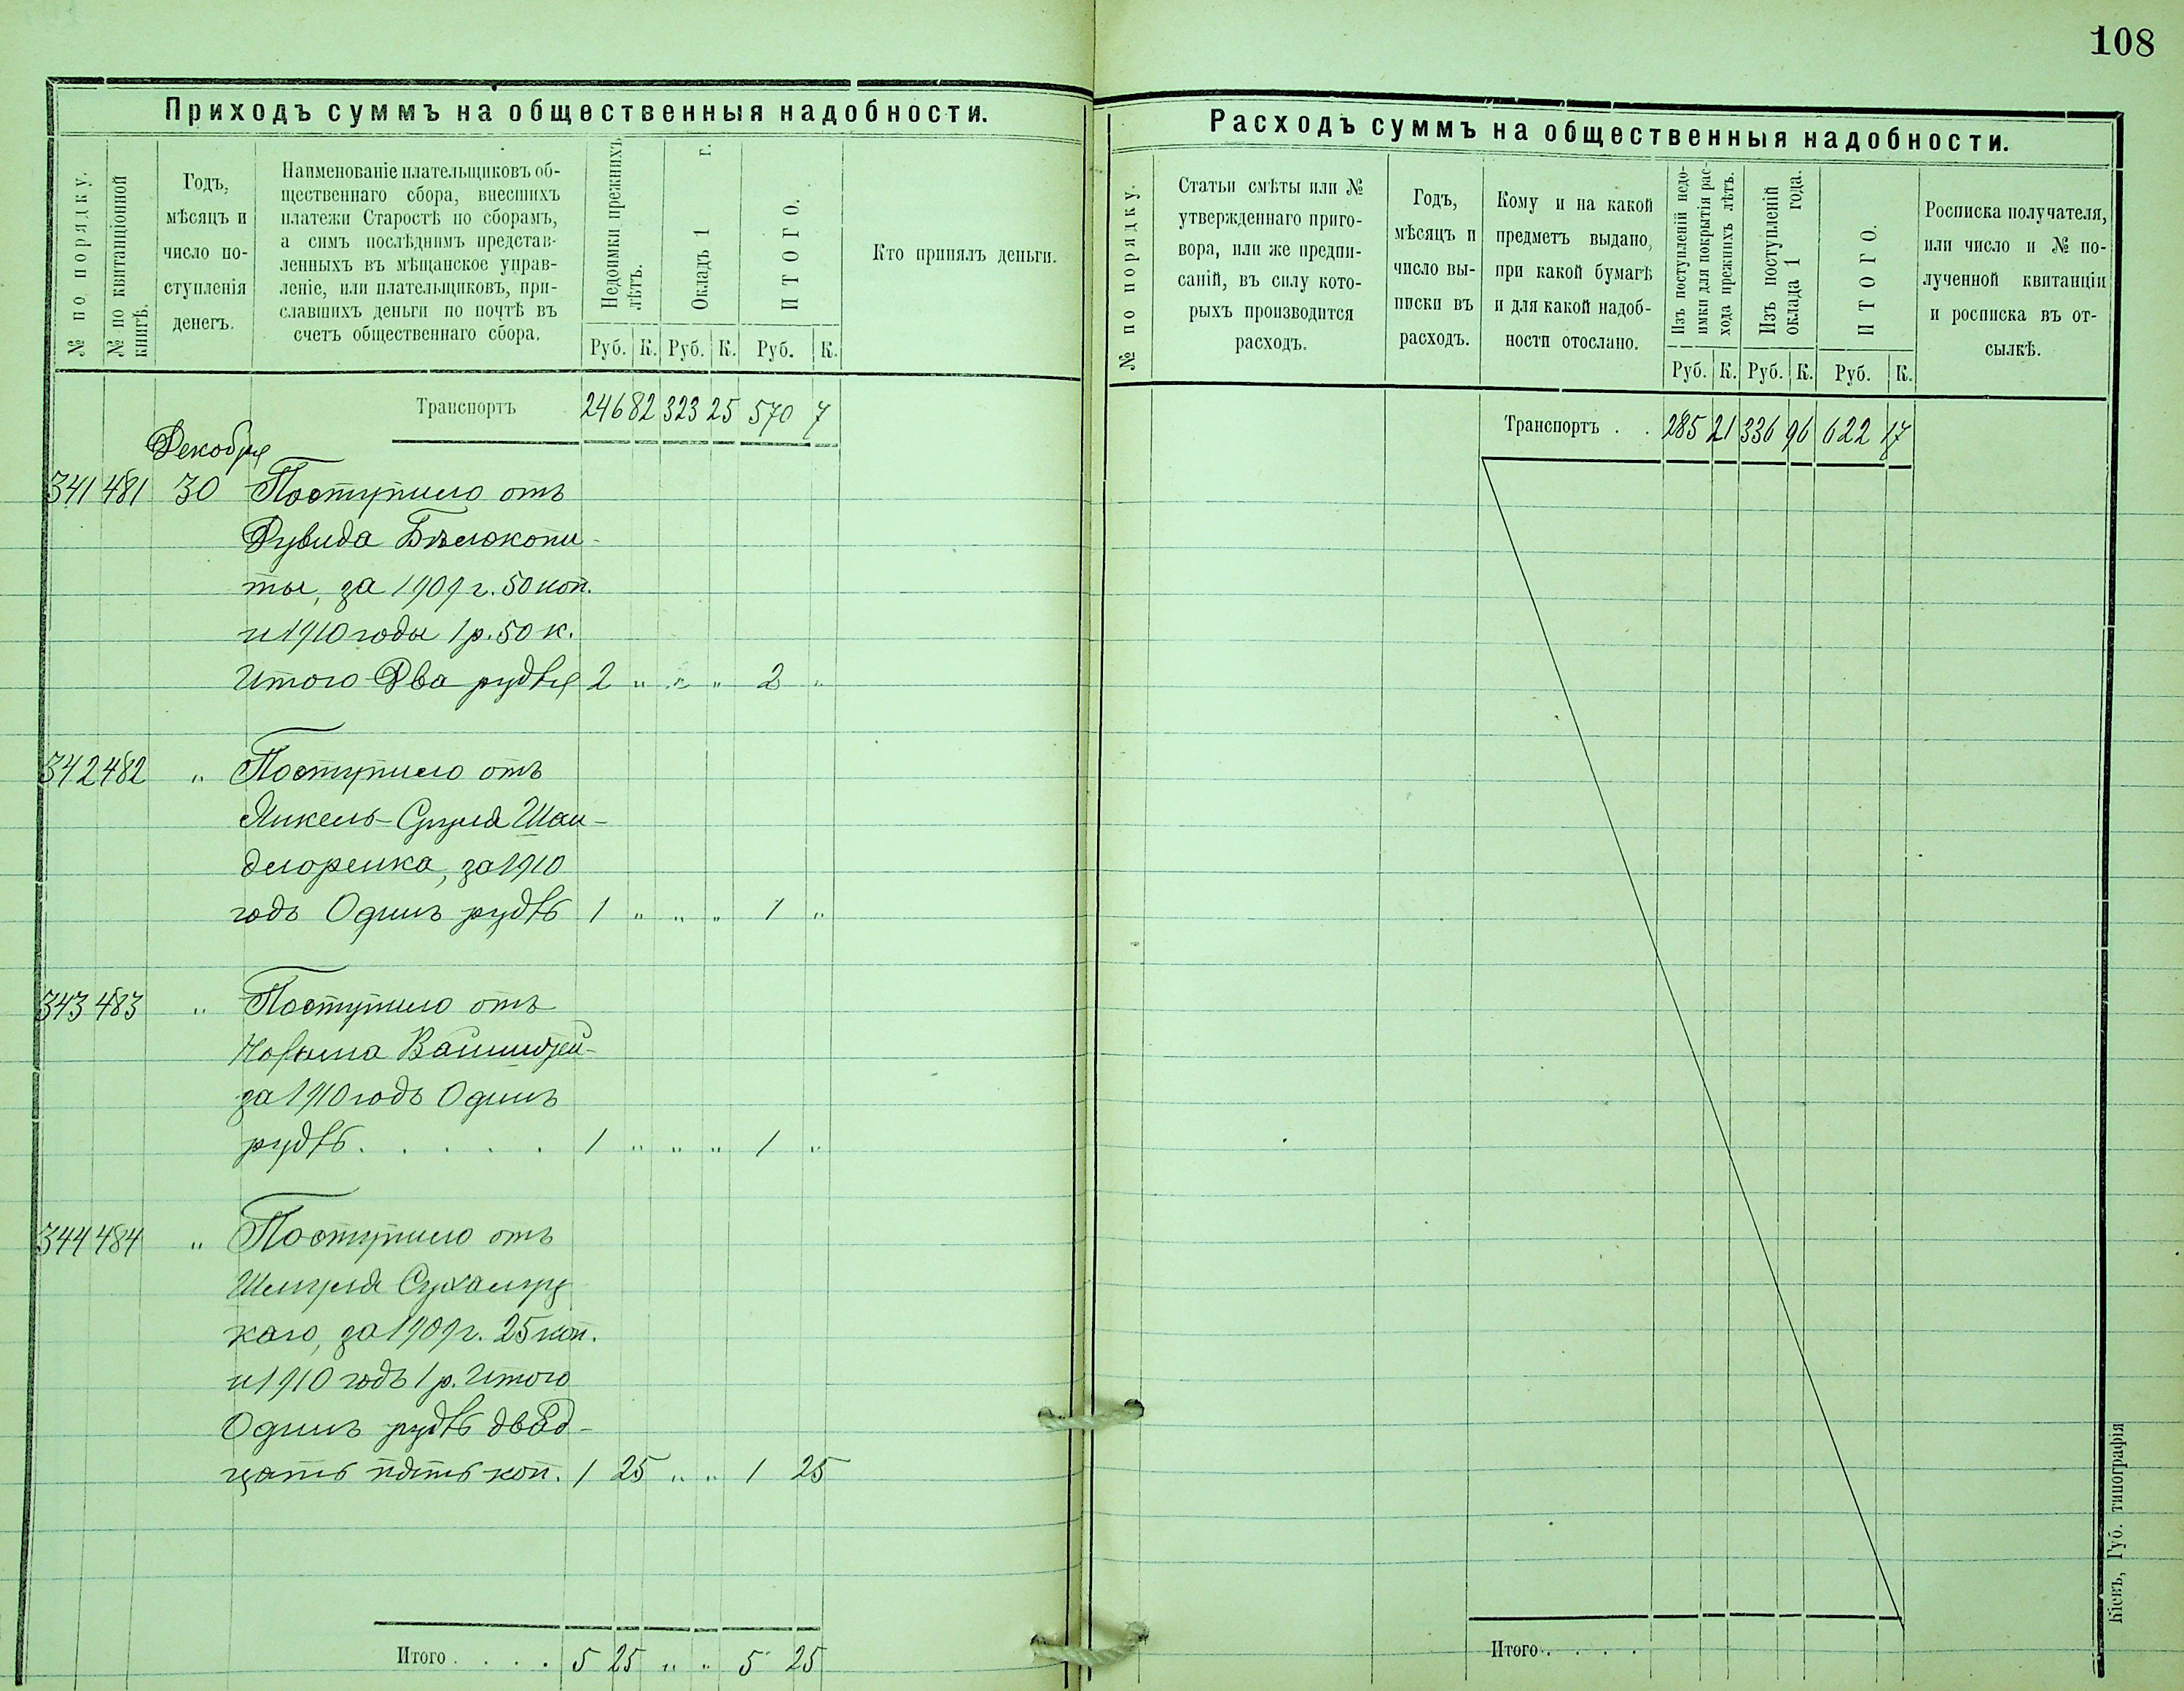 108
Приходъ суммъ на общественныя надобности.
№ по порядку.
№ по квитанціонной
книгѣ.
Годъ,
мѣсяцъ и
число по-
ступленія
денегъ.
Наименованіе плательщиковъ об-
щественнаго сбора, внесшихъ
платежи Старостѣ по сборамъ,
а симъ послѣднимъ представ-
ленныхъ въ мѣщанское управ-
леніе, или плательщиковъ, при-
славшихъ деньги по почтѣ въ
счетъ общественнаго сбора.
Недоимки прежнихъ
лѣтъ.
Окладъ 1 г.
ИТОГО.
Кто принялъ деньги.
Руб. К. Руб. К. Руб. К.
Транспортъ 246 82 323 25 570 7
Декабря
341 481 30 Поступило отъ
Дувида Бѣлокопи-
ты, за 1909 г. 50 коп.
и 1910 годы 1 р. 50 к.
Итого Два рубля 2 „ „ „ 2 „
342 482 „ Поступило отъ
Янкель-Сруля Шан-
за 1910
годъ Одинъ рубль 1 „ „ „ 1 „
343 483 „ Поступило отъ
за 1910 годъ Одинъ
рубль. . . . . . 1 „ „ „ 1 „
344 484 „ Поступило отъ
Шмуля
каго, за 1909 г. 25 коп.
и 1910 годъ 1 р. Итого
Одинъ рубль двад-
цать пять коп. 1 25 „ „ 1 25
Итого . . . . 5 25 „ „ 5 25
Расходъ суммъ на общественныя надобности.
№ по порядку.
Статьи смѣты или №
утвержденнаго приго-
вора, или же предпи-
саній, въ силу кото-
рыхъ производится
расходъ.
Годъ,
мѣсяцъ и
число вы-
писки въ
расходъ.
Кому и на какой
предметъ выдано,
при какой бумагѣ
и для какой надоб-
ности отослано.
Изъ поступленій недо-
имки для покрытія рас-
хода прежнихъ лѣтъ.
Изъ поступленій
оклада 1 года.
ИТОГО.
Росписка получателя,
или число и № по-
лученной квитанціи
и росписка въ от-
сылкѣ.
Руб. К. Руб. К. Руб. К.
Транспортъ . . 285 21 336 96 622 17
Итого . . . .
Кіевъ, Губ. типографія